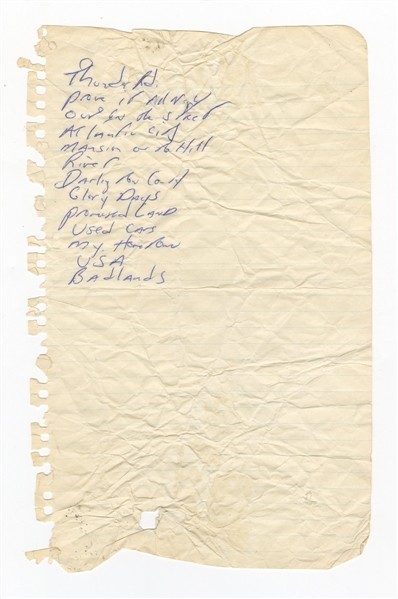 Thunder Rd.
Prove it All Night
Out in the Street
Atlantic City
Mansion on the Hill
River
Darlington County
Glory Days
Promised Land
Used Cars
My Hometown
USA
Badlands